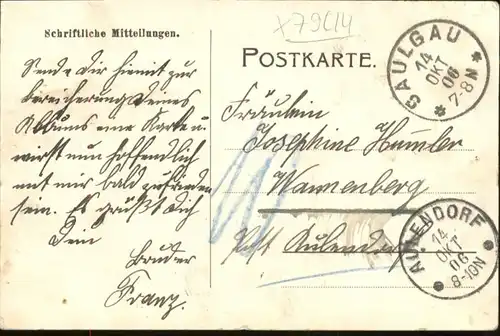 x79C14
Schriftliche Mitteilungen.
Sende Dir hiemit zur
bereicherung Deines
Albums eine Karte u.
wirst nun hoffendlich
mit mir bald zufrieden
sein. Es grüßt Dich
Dein
Bruder
Franz.
POSTKARTE.
Fräulein
Josephine Hummler
Wannenberg
Post Aulendorf
SAULGAU
14
OKT
06
7-8N
AULENDORF
14
OKT
06
8-10N